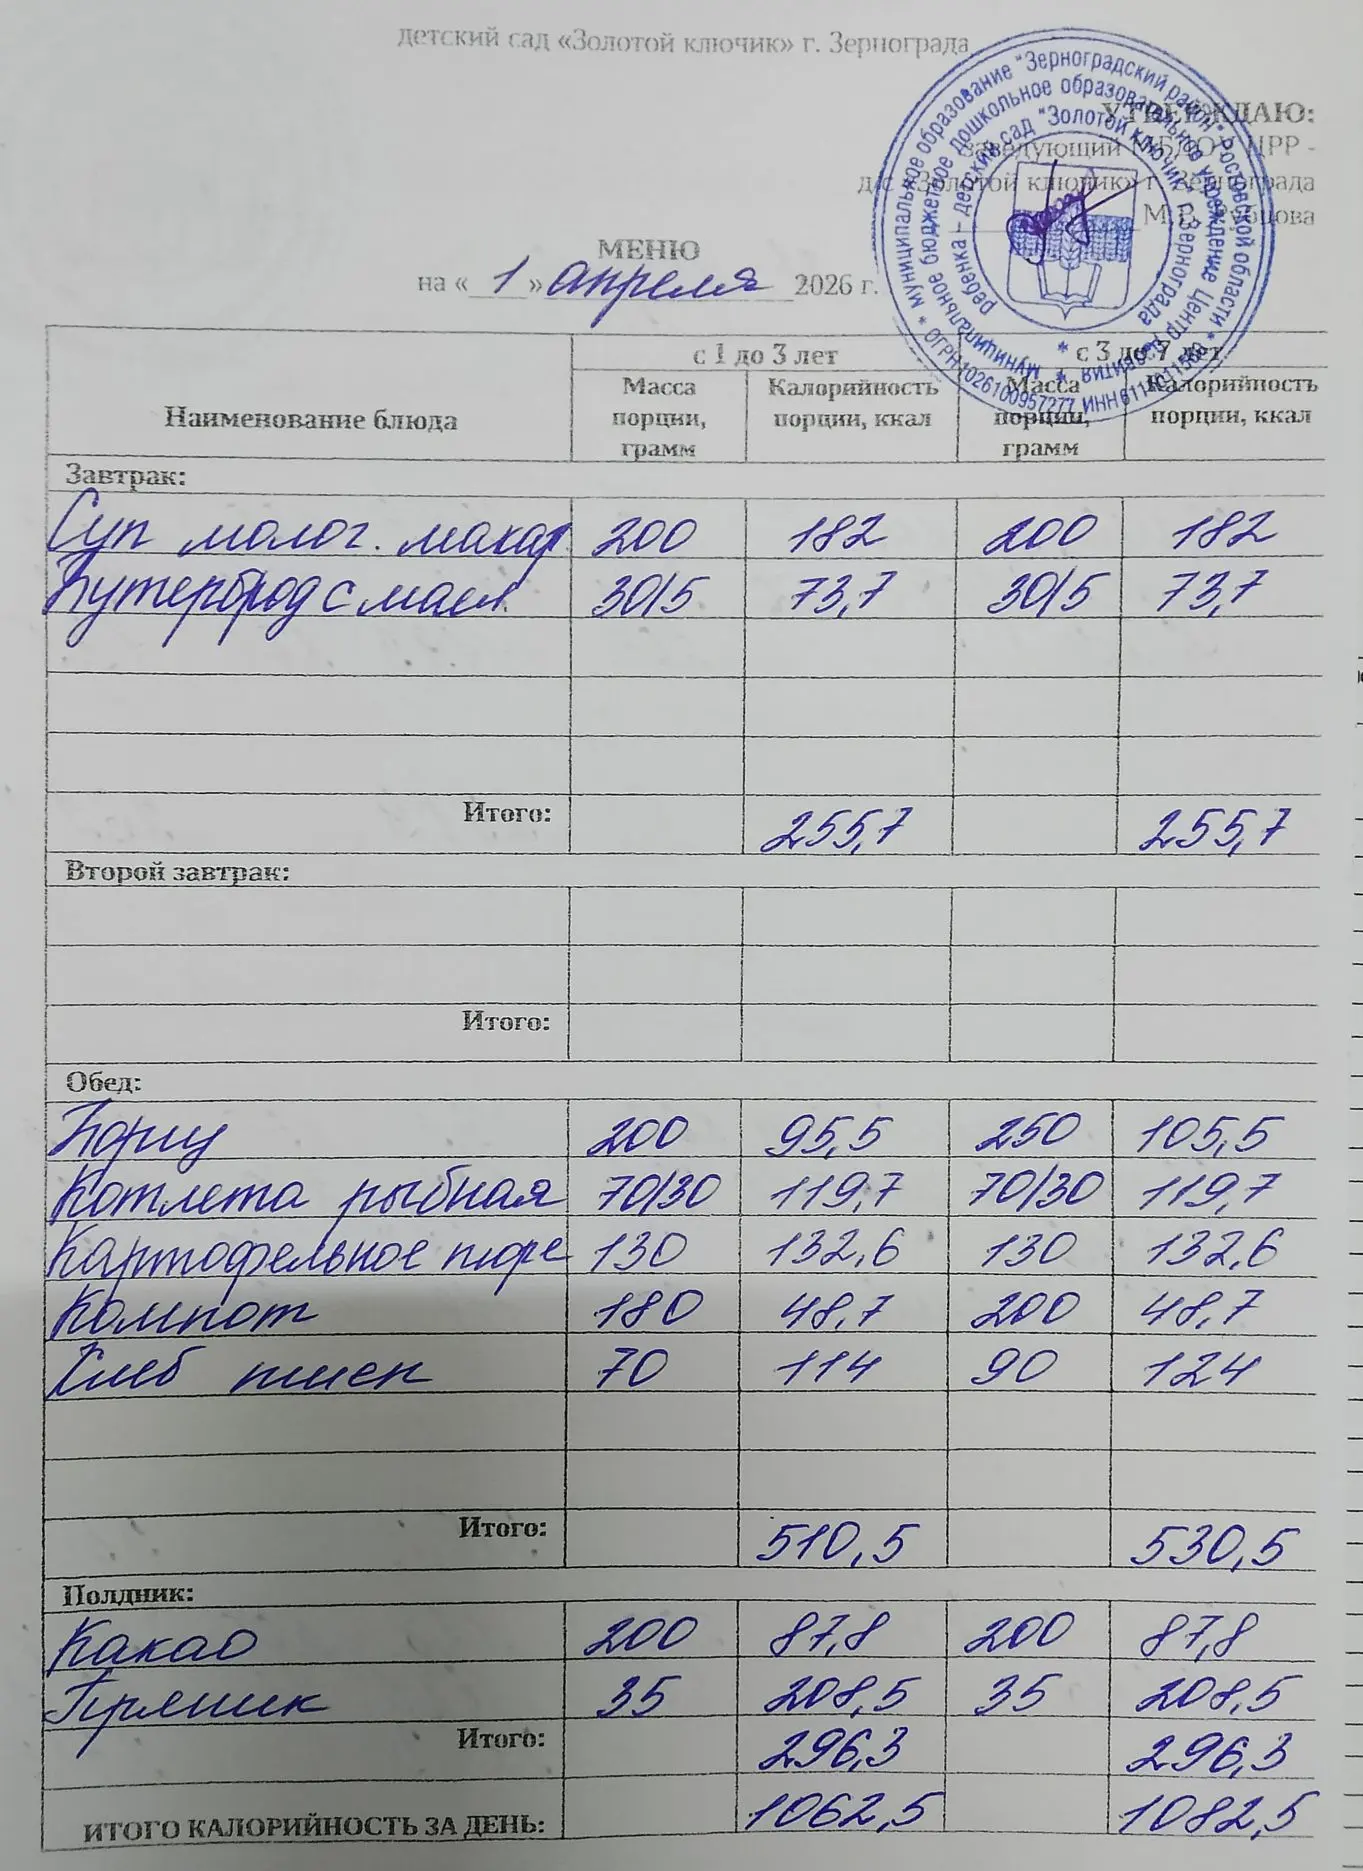 детский сад «Золотой ключик» г. Зернограда
УТВЕРЖДАЮ:
Заведующий МБДОУ ЦРР -
д/с «Золотой ключик» г. Зернограда
М.В. Рубцова
муниципальное образование "Зерноградский район" Ростовской области
* ОГРН 1026100957277 ИНН 6111011560 *
Муниципальное бюджетное дошкольное образовательное учреждение Центр развития
ребенка - детский сад "Золотой ключик" г. Зернограда
МЕНЮ
на « 1 » апреля 2026 г.
Наименование блюда с 1 до 3 лет с 3 до 7 лет
Масса порции, грамм Калорийность порции, ккал Масса порции, грамм Калорийность порции, ккал
Завтрак:
Суп молоч. макар 200 182 200 182
Бутерброд с масл 30/5 73,7 30/5 73,7
Итого: 255,7 255,7
Второй завтрак:
Итого:
Обед:
Борщ 200 95,5 250 105,5
Котлета рыбная 70/30 119,7 70/30 119,7
Картофельное пюре 130 132,6 130 132,6
Компот 180 48,7 200 48,7
Хлеб пшен 70 114 90 124
Итого: 510,5 530,5
Полдник:
Какао 200 87,8 200 87,8
Пряник 35 208,5 35 208,5
Итого: 296,3 296,3
ИТОГО КАЛОРИЙНОСТЬ ЗА ДЕНЬ: 1062,5 1082,5